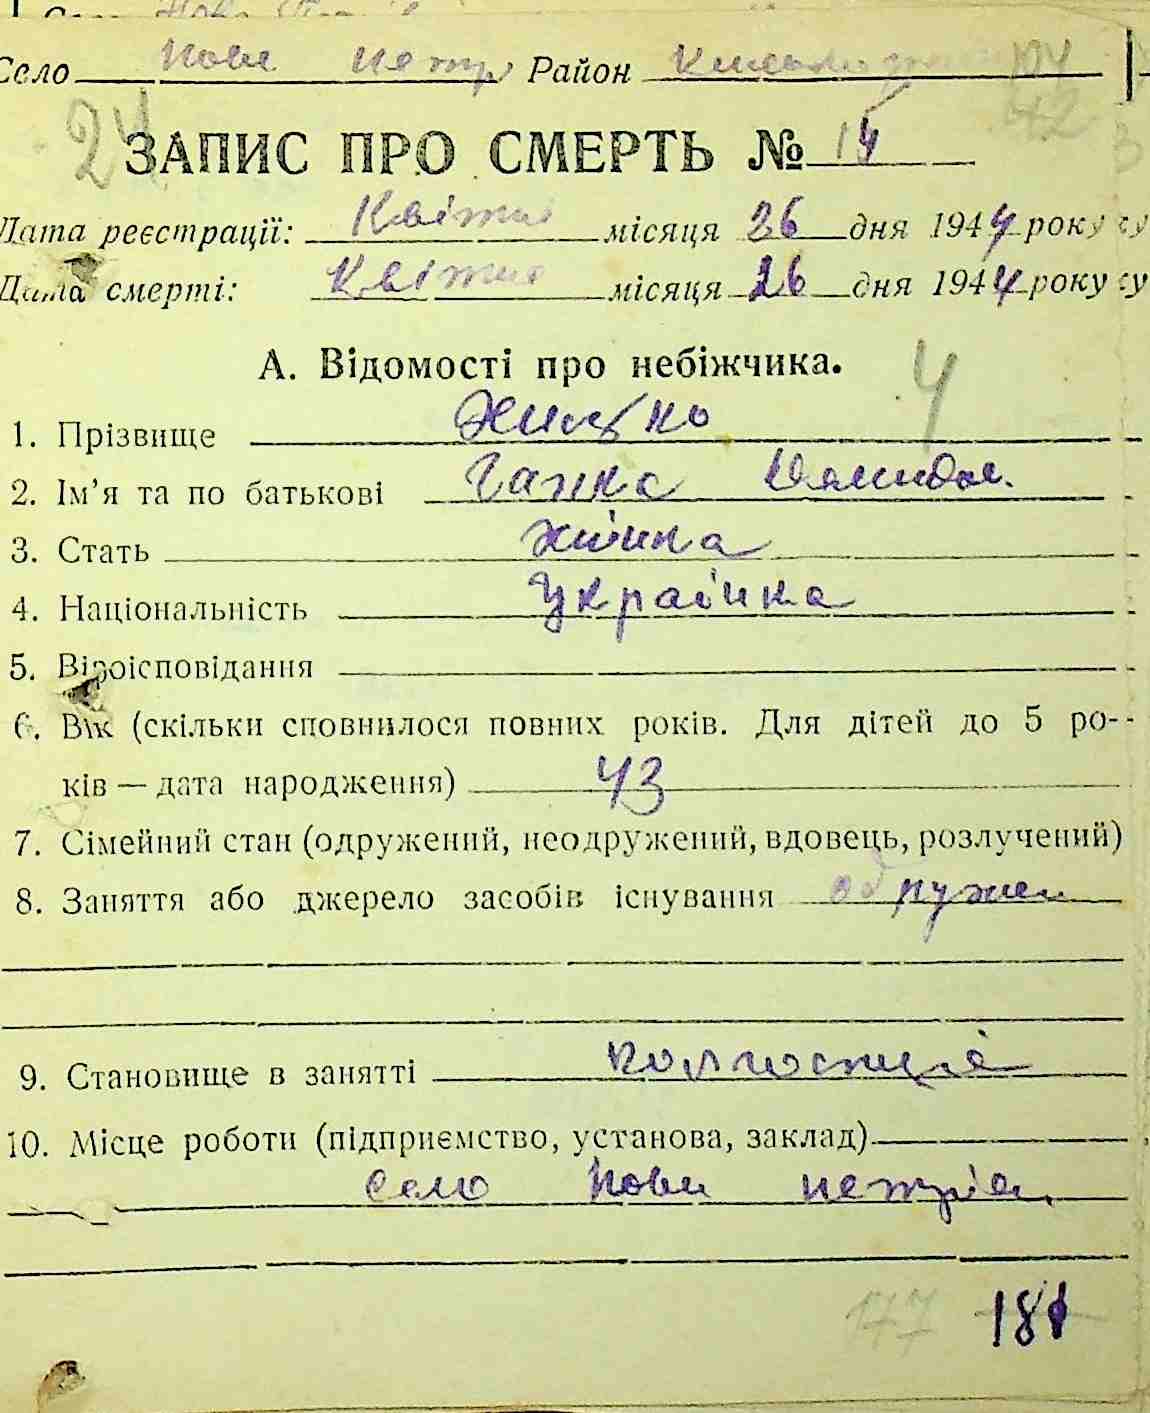 Село Нове Петр Район
24
42
ЗАПИС ПРО СМЕРТЬ № 14
Дата реєстрації: Квітня місяця 26 дня 1944 року
Дата смерті: Квітня місяця 26 дня 1944 року
А. Відомості про небіжчика.
4
1. Прізвище
2. Ім’я та по батькові Ганна
3. Стать жінка
4. Національність Українка
5. Віроісповідання
6. Вік (скільки сповнилося повних років. Для дітей до 5 ро-
ків — дата народження) 43
7. Сімейний стан (одружений, неодружений, вдовець, розлучений)
8. Заняття або джерело засобів існування одружен
9. Становище в занятті
10. Місце роботи (підприємство, установа, заклад)
село Нови Петрівц
177 181